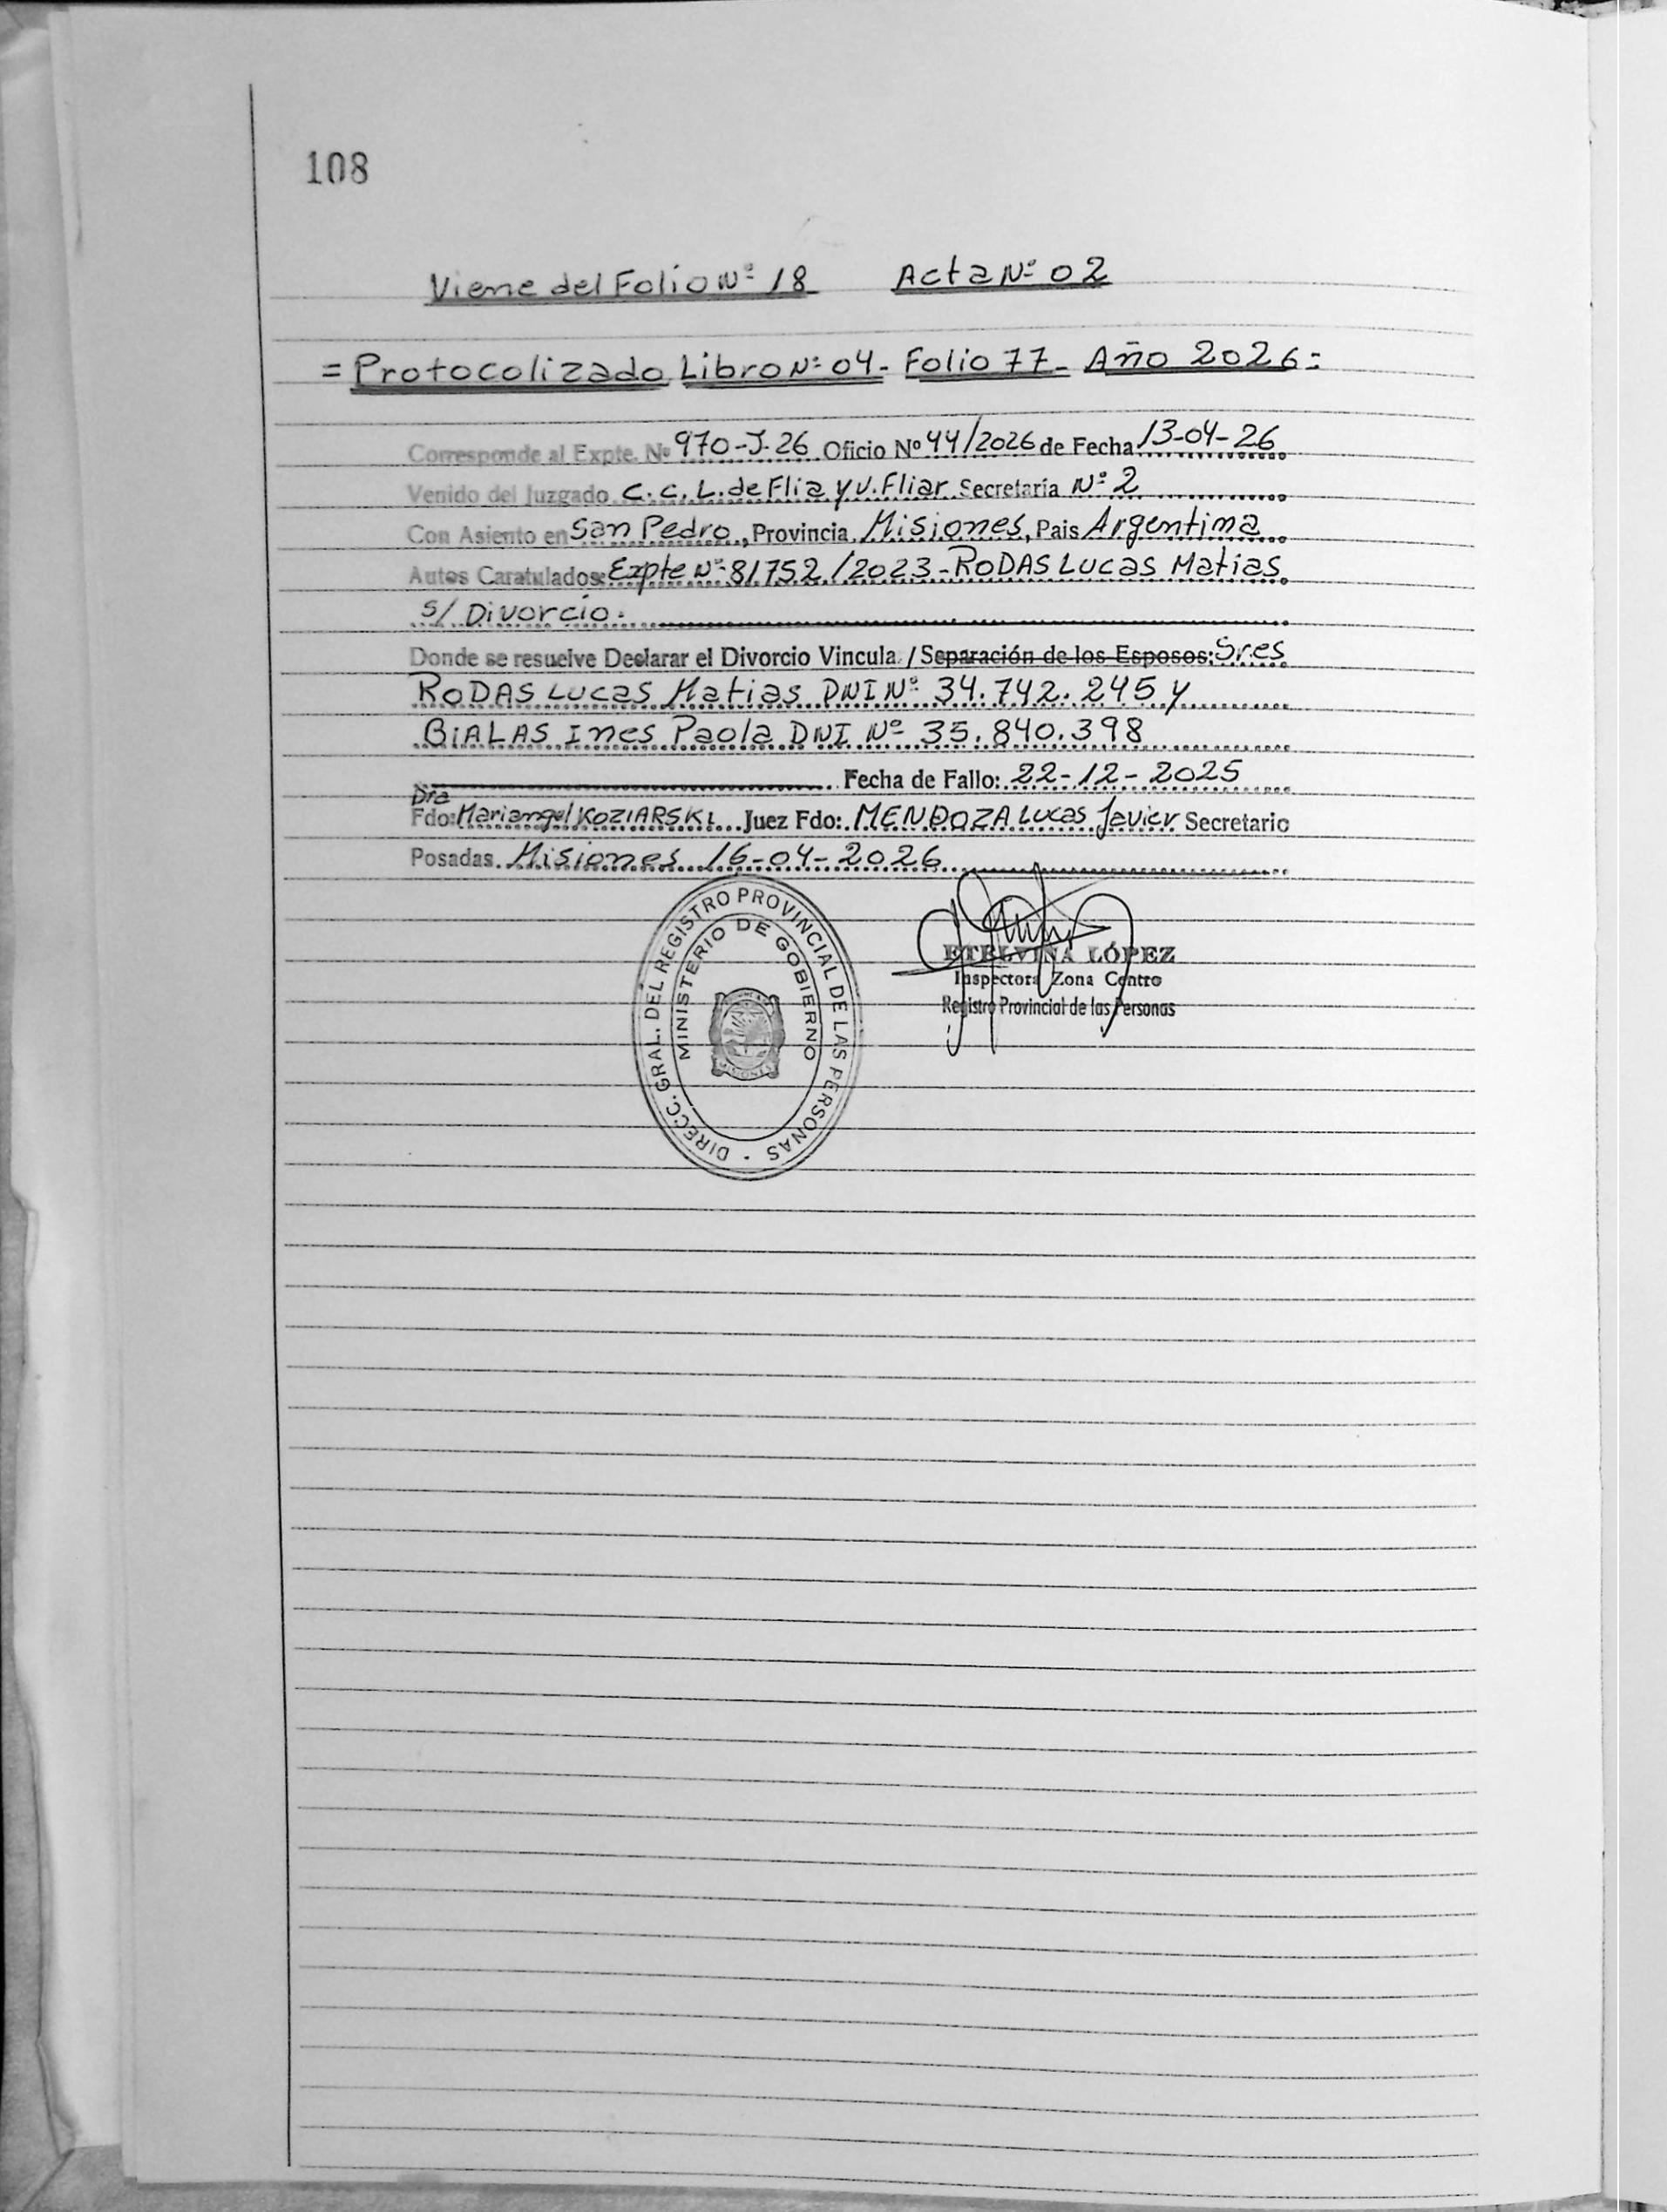 108
Viene del Folio Nº 18 Acta Nº 02
= Protocolizado Libro Nº 04 - Folio 77 - Año 2026 =
Corresponde al Expte. Nº 970-J-26 Oficio Nº 44/2026 de Fecha 13-04-26
Venido del Juzgado C.C.L. de Flia y V. Fliar Secretaría Nº 2
Con Asiento en San Pedro, Provincia Misiones, Pais Argentina
Autos Caratulados: Expte Nº 81752/2023 - RODAS Lucas Matias
s/ Divorcio.
Donde se resuelve Declarar el Divorcio Vincula / Separación de los Esposos: Sres
RODAS Lucas Matias DNI Nº 34.742.245 y
BIALAS Ines Paola DNI Nº 35.840.398
Fecha de Fallo: 22-12-2025
Dra
Fdo: Mariangel KOZIARSKI Juez Fdo: MENDOZA Lucas Javier Secretario
Posadas. Misiones 16-04-2026
DIRECC. GRAL. DEL REGISTRO PROVINCIAL DE LAS PERSONAS
MINISTERIO DE GOBIERNO
MISIONES
ETELVINA LÓPEZ
Inspectora Zona Centro
Registro Provincial de las Personas